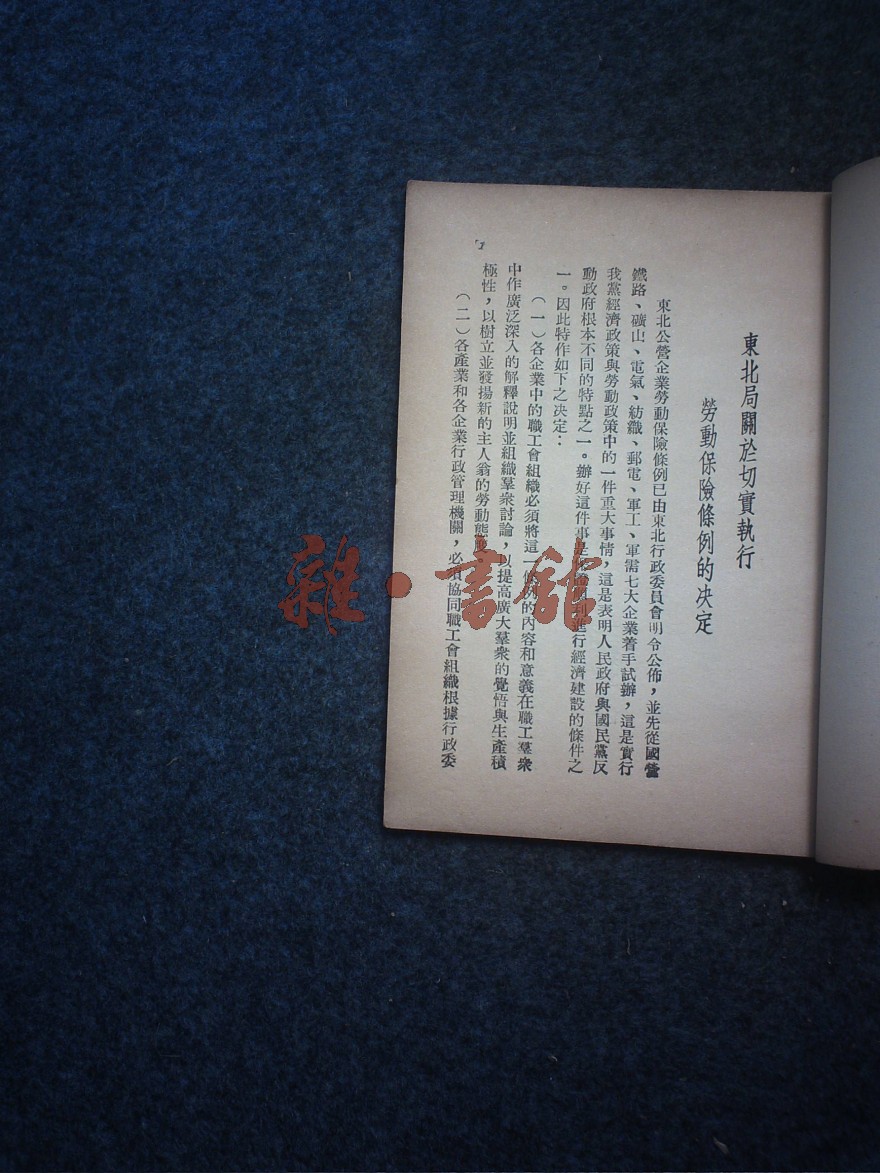 東北局關於切實執行
勞動保險條例的決定
東北公營企業勞動保險條例已由東北行政委員會明令公佈，並先從國營
鐵路、礦山、電氣、紡織、郵電、軍工、軍需七大企業着手試辦，這是實行
我黨經濟政策與勞動政策中的一件重大事情，這是表明人民政府與國民黨反
動政府根本不同的特點之一。辦好這件事是利進行經濟建設的條件之
一。因此特作如下之决定：
（一）各企業中的職工會組織必須將這一條例的內容和意義在職工羣衆
中作廣泛深入的解釋說明並組織羣衆討論，以提高廣大羣衆的覺悟與生產積
極性，以樹立並發揚新的主人翁的勞動態度
（二）各產業和各企業行政管理機關，必須協同職工會組織根據行政委
1
雜·書館